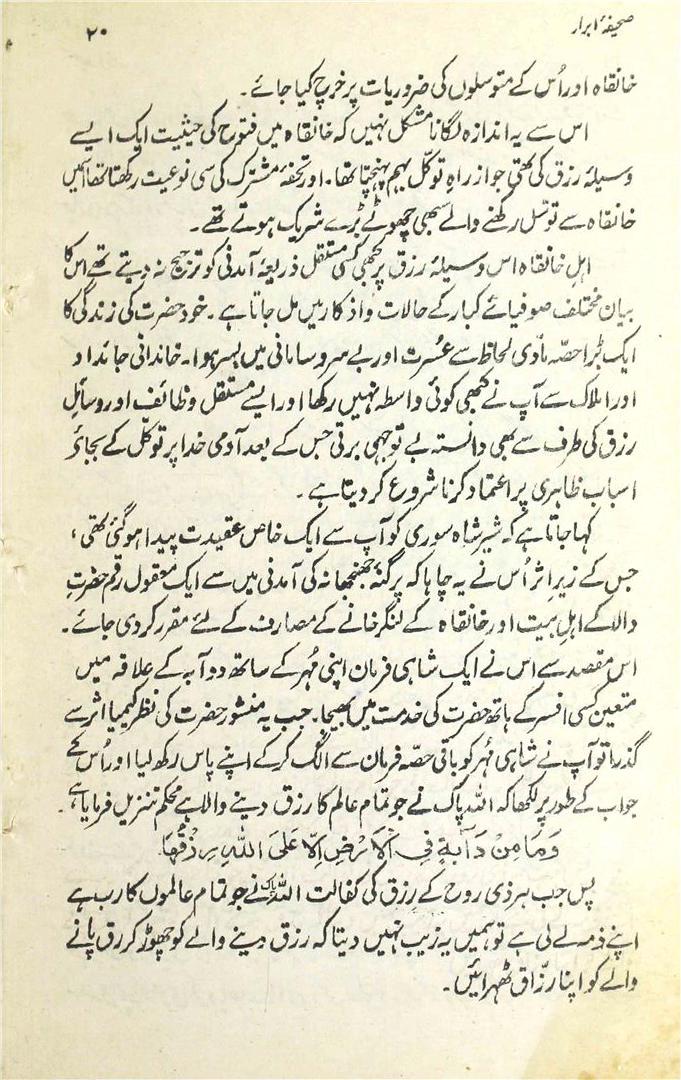 صحیفۂ ابرار
۲۰
خانقاہ اور اُس کے متوسلوں کی ضروریات پر خرچ کیا جائے۔
اس سے یہ اندازہ لگانا مشکل نہیں کہ خانقاہ میں فتوح کی حیثیت ایک ایسے
وسیلۂ رزق کی تھی جو از راہِ توکّل بہم پہنچتا تھا۔ اور تحفۂ مشترک کی سی نوعیت رکھتا تھا اسمیں
خانقاہ سے توسّل رکھنے والے سبھی چھوٹے بڑے شریک ہوتے تھے۔
اہلِ خانقاہ اس وسیلۂ رزق پر کبھی کسی مستقل ذریعۂ آمدنی کو ترجیح نہ دیتے تھے اس کا
بیان مختلف صوفیائے کبار کے حالات و اذکار میں مل جاتا ہے۔ خود حضرت کی زندگی کا
ایک بڑا حصّہ مادّی لحاظ سے عُسرت اور بے سر و سامانی میں بسر ہوا۔ خاندانی جائداد
اور املاک سے آپ نے کبھی کوئی واسطہ نہیں رکھا اور ایسے مستقل وظائف اور وسائلِ
رزق کی طرف سے بھی دانستہ بے توجہی برتی جس کے بعد آدمی خدا پر توکّل کے بجائے
اسباب ظاہری پر اعتماد کرنا شروع کر دیتا ہے۔
کہا جاتا ہے کہ شیر شاہ سوری کو آپ سے ایک خاص عقیدت پیدا ہو گئی تھی،
جس کے زیرِ اثر اُس نے یہ چاہا کہ پرگنہ جھنجھانہ کی آمدنی میں سے ایک معقول رقم حضرتِ
والا کے اہلِ بیت اور خانقاہ کے لنگر خانے کے مصارف کے لئے مقرر کر دی جائے۔
اس مقصد سے اس نے ایک شاہی فرمان اپنی مُہر کے ساتھ دوآبہ کے علاقہ میں
متعین کسی افسر کے ہاتھ حضرت کی خدمت میں بھیجا۔ جب یہ منشور حضرت کی نظر کیمیا اثر سے
گذرا تو آپ نے شاہی مُہر کو باقی حصّہ فرمان سے الگ کر کے اپنے پاس رکھ لیا اور اُس کے
جواب کے طور پر لکھا کہ اللہ پاک نے جو تمام عالم کا رزق دینے والا ہے محکم تنزیل فرمایا ہے۔
وَمَا مِنْ دَآبَّةٍ فِی الْاَرْضِ اِلَّا عَلَی اللّٰهِ رِزْقُهَا۔
پس جب ہر ذی روح کے رزق کی کفالت اللہ پاک نے جو تمام عالموں کا رب ہے
اپنے ذمہ لے لی ہے تو ہمیں یہ زیب نہیں دیتا کہ رزق دینے والے کو چھوڑ کر رزق پانے
والے کو اپنا رزّاق ٹھہرائیں۔